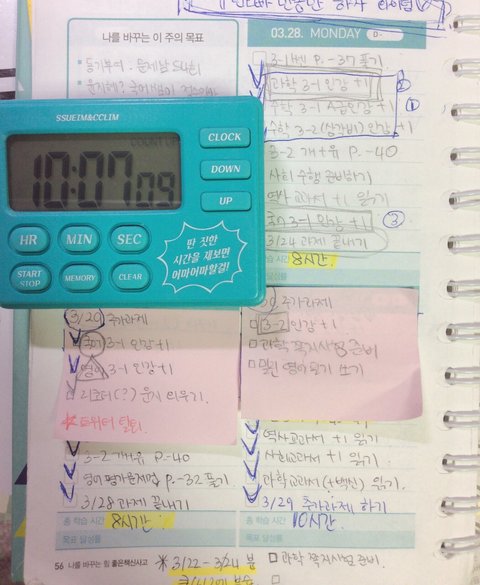 나를 바꾸는 이 주의 목표
동기부여 :
03.28. MONDAY
D-
3-1 P.-37 풀기
과학 3-1 인강 +1
②
수학 3-1 인강 +1
①
수학 3-2 (삼각비) 인강 +1
3-2 개+유 P.-40
사회 수행 준비하기
역사교과서 +1 읽기
국어 3-1 인강 +1
③
3/24 과제 끝내기
8시간
SSUEIM&CCLIM
COUNT UP
10:07 09
CLOCK
DOWN
UP
HR
MIN
SEC
START STOP
MEMORY
CLEAR
딴 짓한
시간을 재보면
어마어마할걸!
3/20 추가과제
국어 3-1 인강 +1
영어 3-1 인강 +1
리코더(?) 운지 외우기.
트위터 탈퇴.
추가과제
3-2 인강 +1
과학 쪽지시험 준비
밀린 영어일기 쓰기
3-2 개+유 P.-40
영어 평가문제집 P.-32 풀기
3/28 과제 끝내기
총 학습 시간
8시간
목표 달성률
역사교과서 +1 읽기
사회교과서 +1 읽기.
과학교과서 읽기.
3/29 추가과제 하기
총 학습 시간
10시간.
목표 달성률
56 나를 바꾸는 힘 좋은책신사고
3/22-3/24 분
과학 쪽지시험 준비.